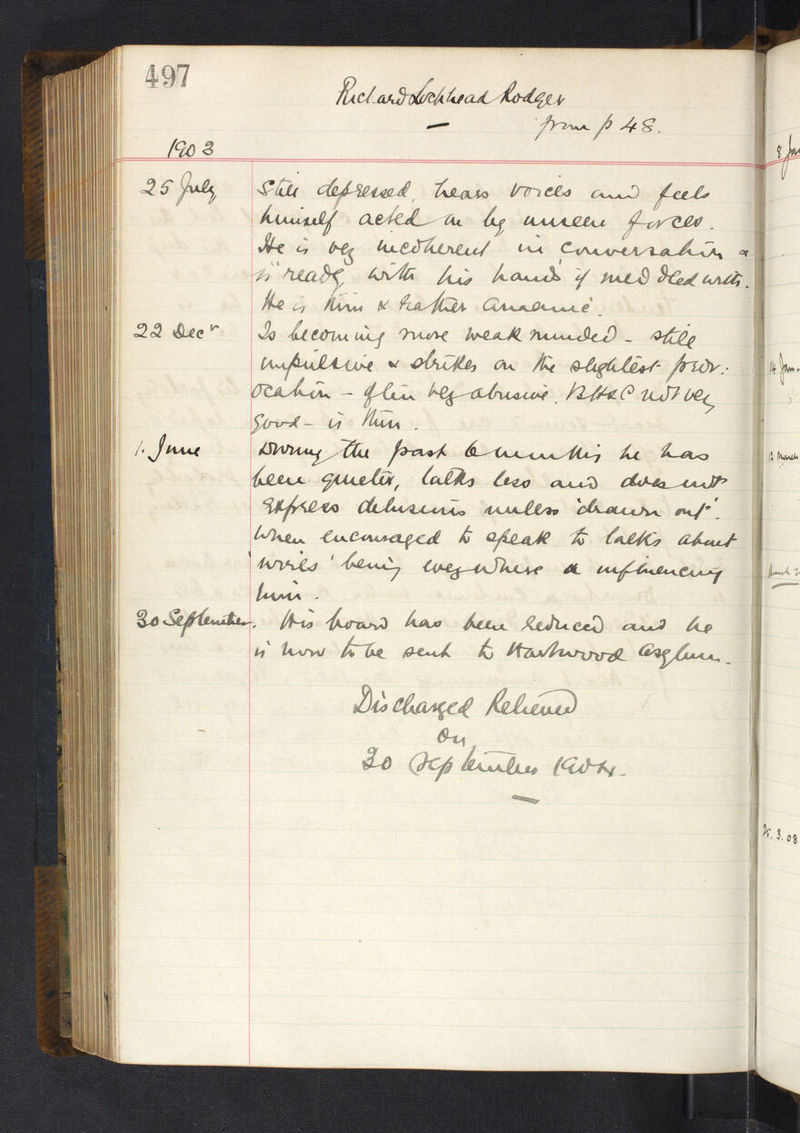 497
Richard Lochhead Rodger
from p 48.
1903
25 July Still depressed, hears voices and feels
himself acted on by unseen forces.
He is vey incoherent in conversation &
is "ready with his hands" if meddled with.
He is thin & rather anaemic.
22 Decr Is becoming more weak minded - still
impulsive & strikes on the slightest prov:
ocation - often vey abusive. B H & C not vey
good - is thin.
1. June During the past 6 months he has
been quieter, talks less and does not
express delusions unless 'drawn out'.
When encouraged to speak to talks about
'wires' being everywhere & influencing
him.
30 September. His board has been reduced and he
is now to be sent to Hartwood Asylum.
Discharged Relieved
on
30 September 1904.
8 Jan
14 Jan.
12 March
25.3.08